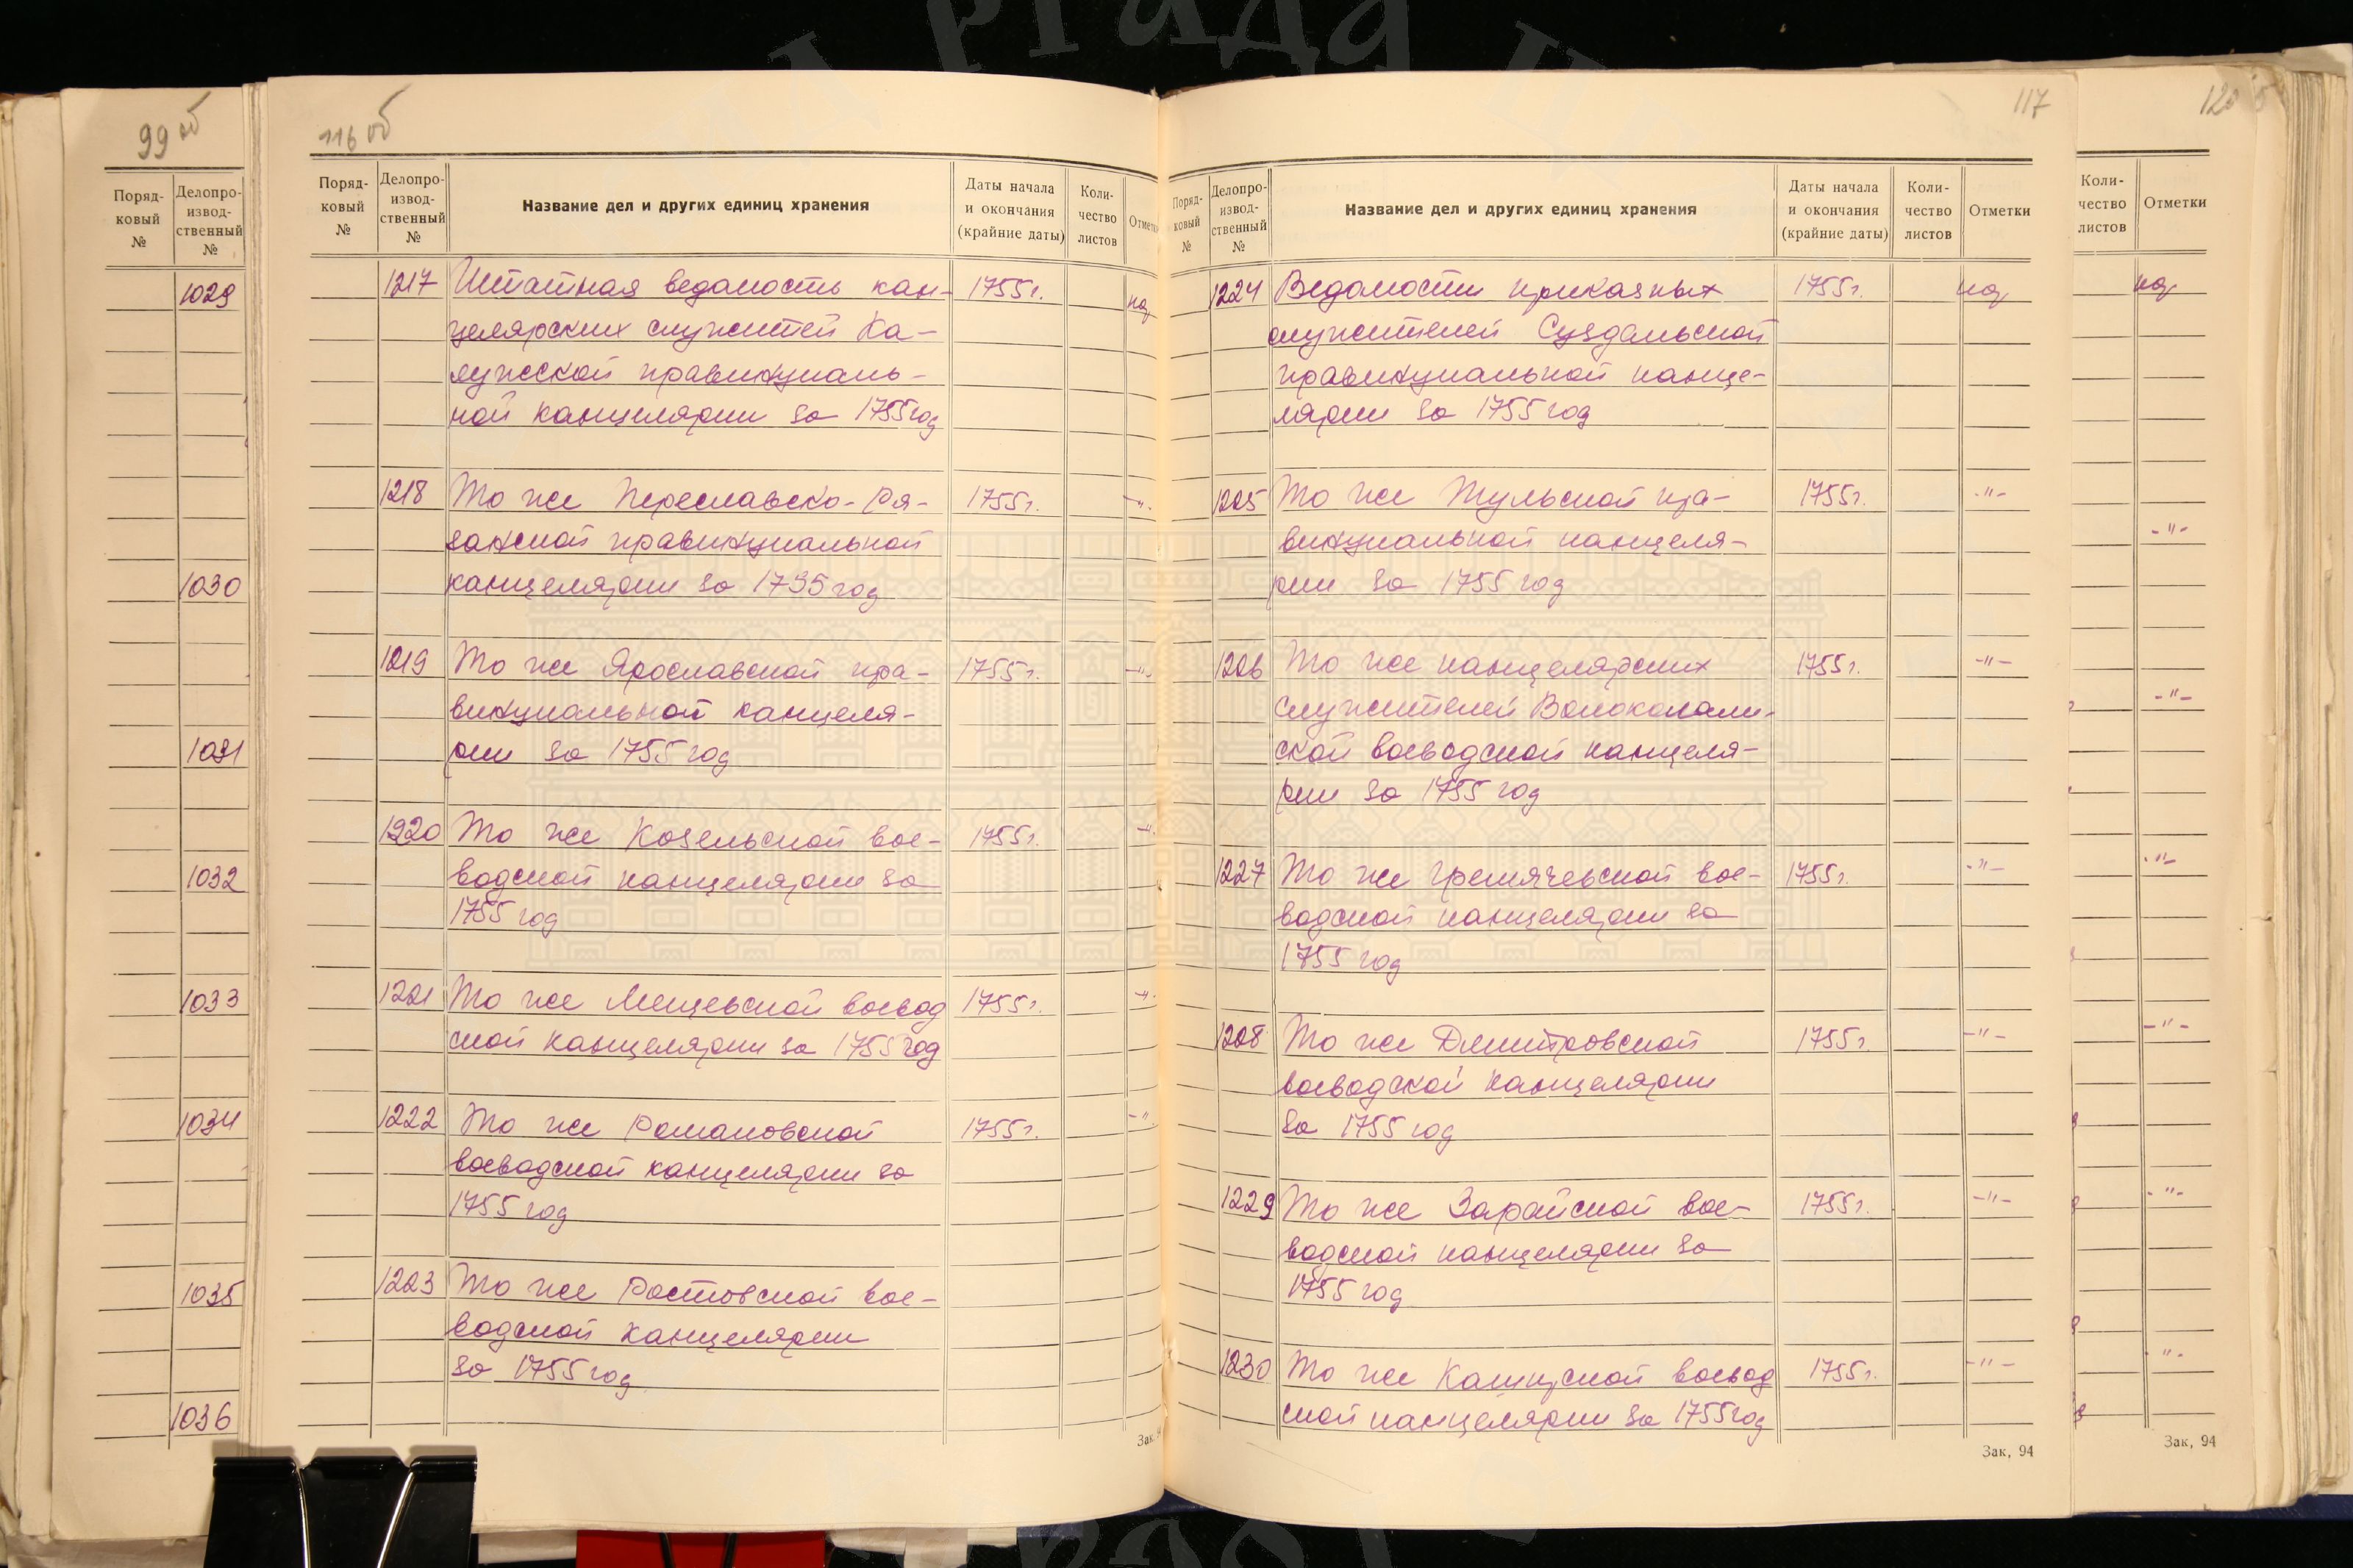 ргада
99 об
Поряд-
ковый
№
Делопро-
извод-
ственный
№
1029
1030
1031
1032
1033
1034
1035
1036
116 об
Поряд-
ковый
№
Делопро-
извод-
ственный
№
Название дел и других единиц хранения
Даты начала
и окончания
(крайние даты)
Коли-
чество
листов
Отметк
1217 Штатная ведамость кан- 1755 г.
целярских служитей Ка-
лужской правинциаль-
ной канцелярии за 1755 год
1218 То же Переславско-Ря- 1755 г. -"-
занской правинциальной
канцелярии за 1795 год
1219 То же Ярославской пра- 1755 г. -"-
винциальной канцеля-
рии за 1755 год
1220 То же Козельской вое- 1755 г. -"-
водской канцелярии за
1755 год
1221 То же Мещевской воевод 1755 г. -"-
ской канцелярии за 1755 год
1222 То же Романовской 1755 г. -"
воеводской канцелярии за
1755 год
1223 То же Ростовской вое-
водской канцелярии
за 1755 год
Зак.
117
Поряд-
ковый
№
Делопро-
извод-
ственный
№
Название дел и других единиц хранения
Даты начала
и окончания
(крайние даты)
Коли-
чество
листов
Отметки
1224 Ведомости приказных 1755 г.
служителей Суздальской
правинциальной канце-
лярии за 1755 год
1225 То же Тульской пра- 1755 г. -"-
винциальной канцеля-
рии за 1755 год
1226 То же канцелярских 1755 г. -"-
служителей Волоколам-
ской воеводской канцеля-
рии за 1755 год
1227 То же Гремячевской вое- 1755 г. -"-
водской канцелярии за
1755 год
1228 То же Дмитровской 1755 г. -"-
воеводской канцелярии
за 1755 год
1229 То же Зарайской вое- 1755 г. -"-
водской канцелярии за
1755 год
1230 То же Каширской воевод 1755 г. -"-
ской канцелярии за 1755 год
Зак, 94
Коли-
чество
листов
Отметки
-"-
-"-
-"-
-"-
-"-
-"-
Зак, 94